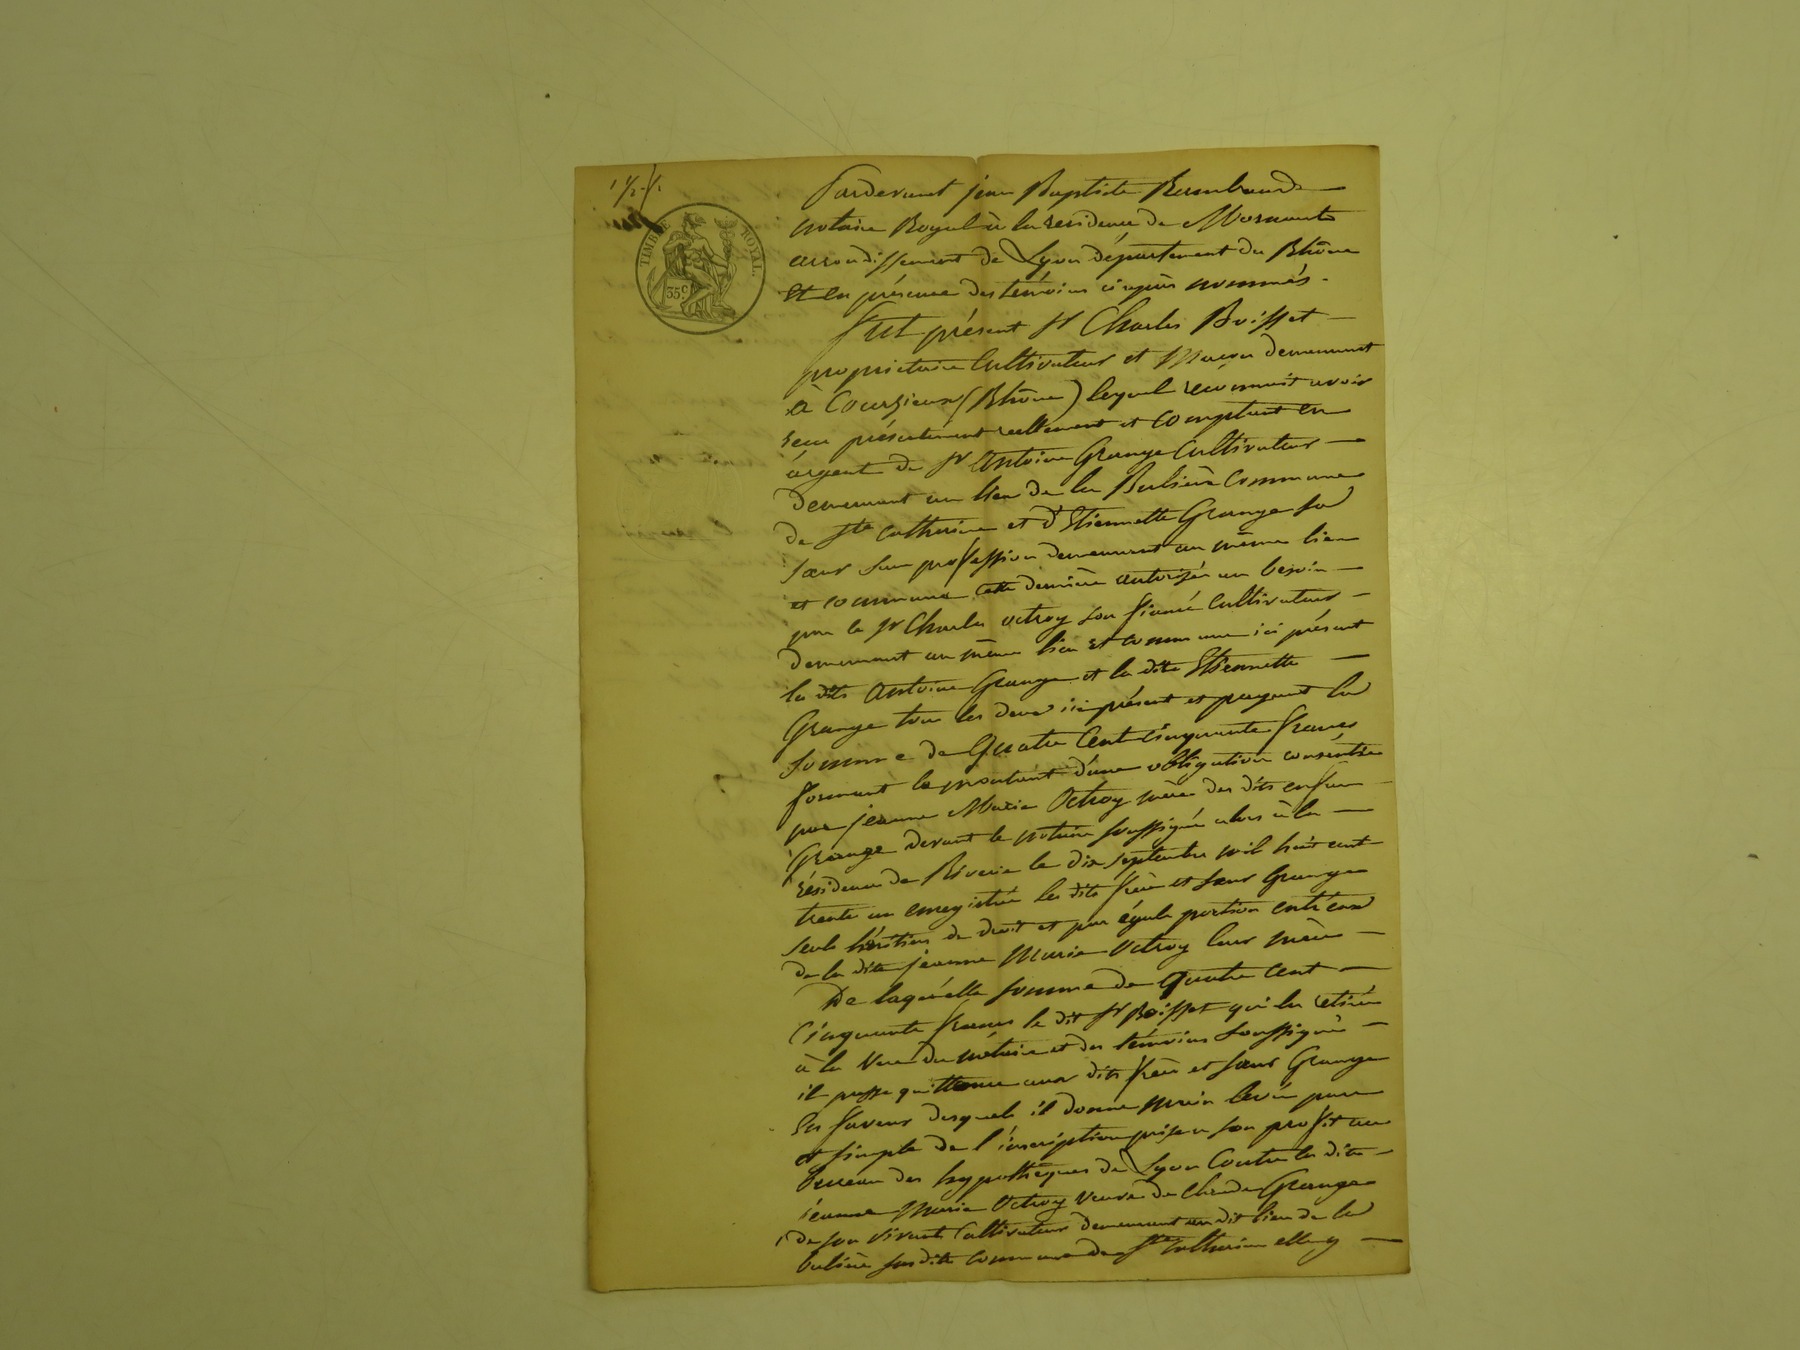 TIMBRE ROYAL.
35 c
Pardevant jean Baptiste Rambaud
notaire Royal à la résidence de Mornant
arrondissement de Lyon département du Rhône
et en présence des témoins ci après nommés.
Fut présent Sr Charles Boisset
propriétaire Cultivateur et Maçon demeurant
à Courzieux (Rhône) lequel reconnait avoir
recu présentement réellement et comptant en
argent de Sr Antoine Grange Cultivateur
demeurant au lieu de la Bulière Commune
de Ste Catherine et d'Etiennette Grange sa
sœur sans profession demeurant au même lieu
et commune cette dernière autorisée au besoin
par le Sr Charles Octroy son fiancé Cultivateur
demeurant au même lieu et commune ici présent
les dits Antoine Grange et la dite Etiennette
Grange tous les deux ici présent et payant la
somme de Quatre Cent Cinquante francs
formant le montant d'une obligation consentie
par jeanne Marie Octroy mère des dits enfans
Grange devant le notaire soussigné alors à la
résidence de Riverie le dix septembre mil huit cent
trente un enregistrée les dits frère et sœur Grange
seuls héritiers de droit et par égale portion entr'eux
de la dite jeanne Marie Octroy leur mère
De laquelle somme de Quatre Cent
Cinquante francs le dit Sr Boisset qui l'a retirée
à la vue du notaire et des témoins soussignés
il passe quittance aux dits frère et sœur Grange
en faveur desquels il donne main levée pure
et simple de l'inscription prise a son profit au
bureau des hypothèques de Lyon Contre la dite
jeanne Marie Octroy veuve de Claude Grange
de son vivant Cultivateur demeurant au dit lieu de la
bulière susdite commune de Ste Catherine